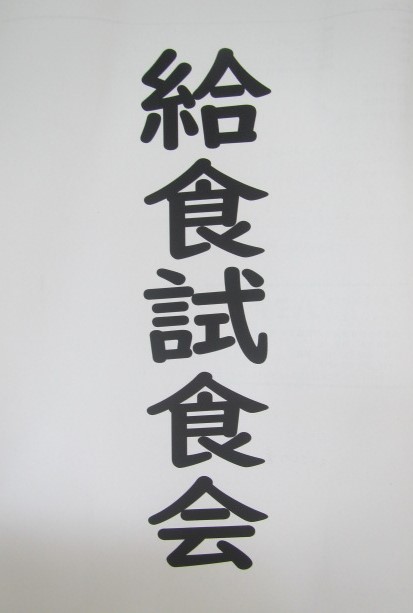 給食試食会